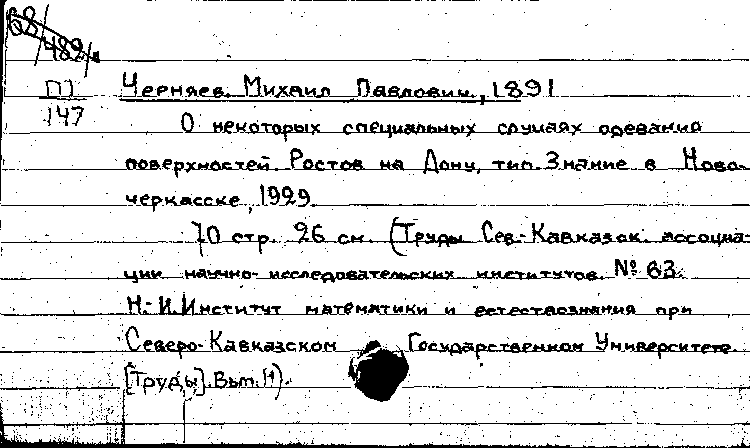 68/482
П1
147
Черняев, Михаил Павлович, 1891
О некоторых специальных случаях одевания
поверхностей. Ростов на Дону, тип. Знание в Ново-
черкасске, 1929.
70 стр. 26 см. (Труды Сев.-Кавказск. ассоциа-
ции научно-исследовательских институтов. № 63.
Н.-И. Институт математики и естествознания при
Северо-Кавказском Государственном Университете.
[Труды]. Вып. 14).